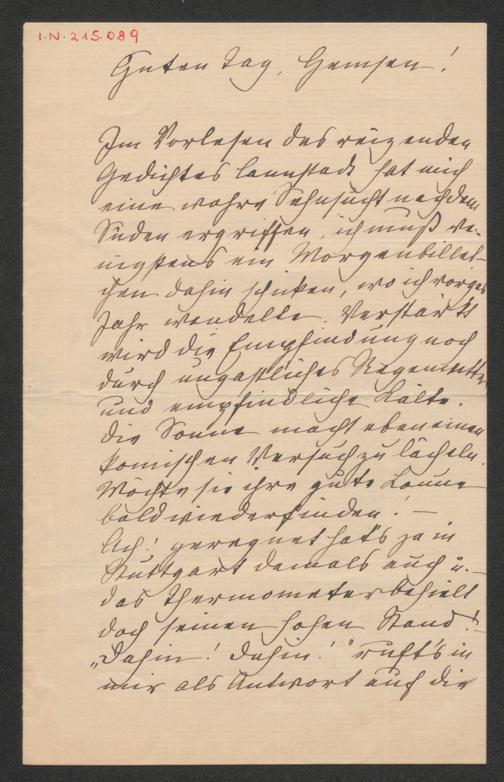 I.N. 215.089
Guten Tag, Gemsen!
Im Vorlesen des reizenden
Gedichtes hat mich
eine wahre Sehnsucht nach dem
Süden ergriffen, ich muß we-
nigstens ein Morgenbillet-
chen dahin schicken, wo ich voriges
Jahr wandelte. Verstärkt
wird die Empfindung noch
durch ungastliches Regenwetter
und empfindliche Kälte.
Die Sonne macht eben einen
komischen Versuch zu lächeln.
Möchte sie ihre gute Laune
bald wiederfinden! —
Ach! geregnet hat's ja in
Stuttgart damals auch u. —
das Thermometer behielt
doch seinen hohen Stand! —
„Dahin! Dahin!" ruft's in
mir als Antwort auf die